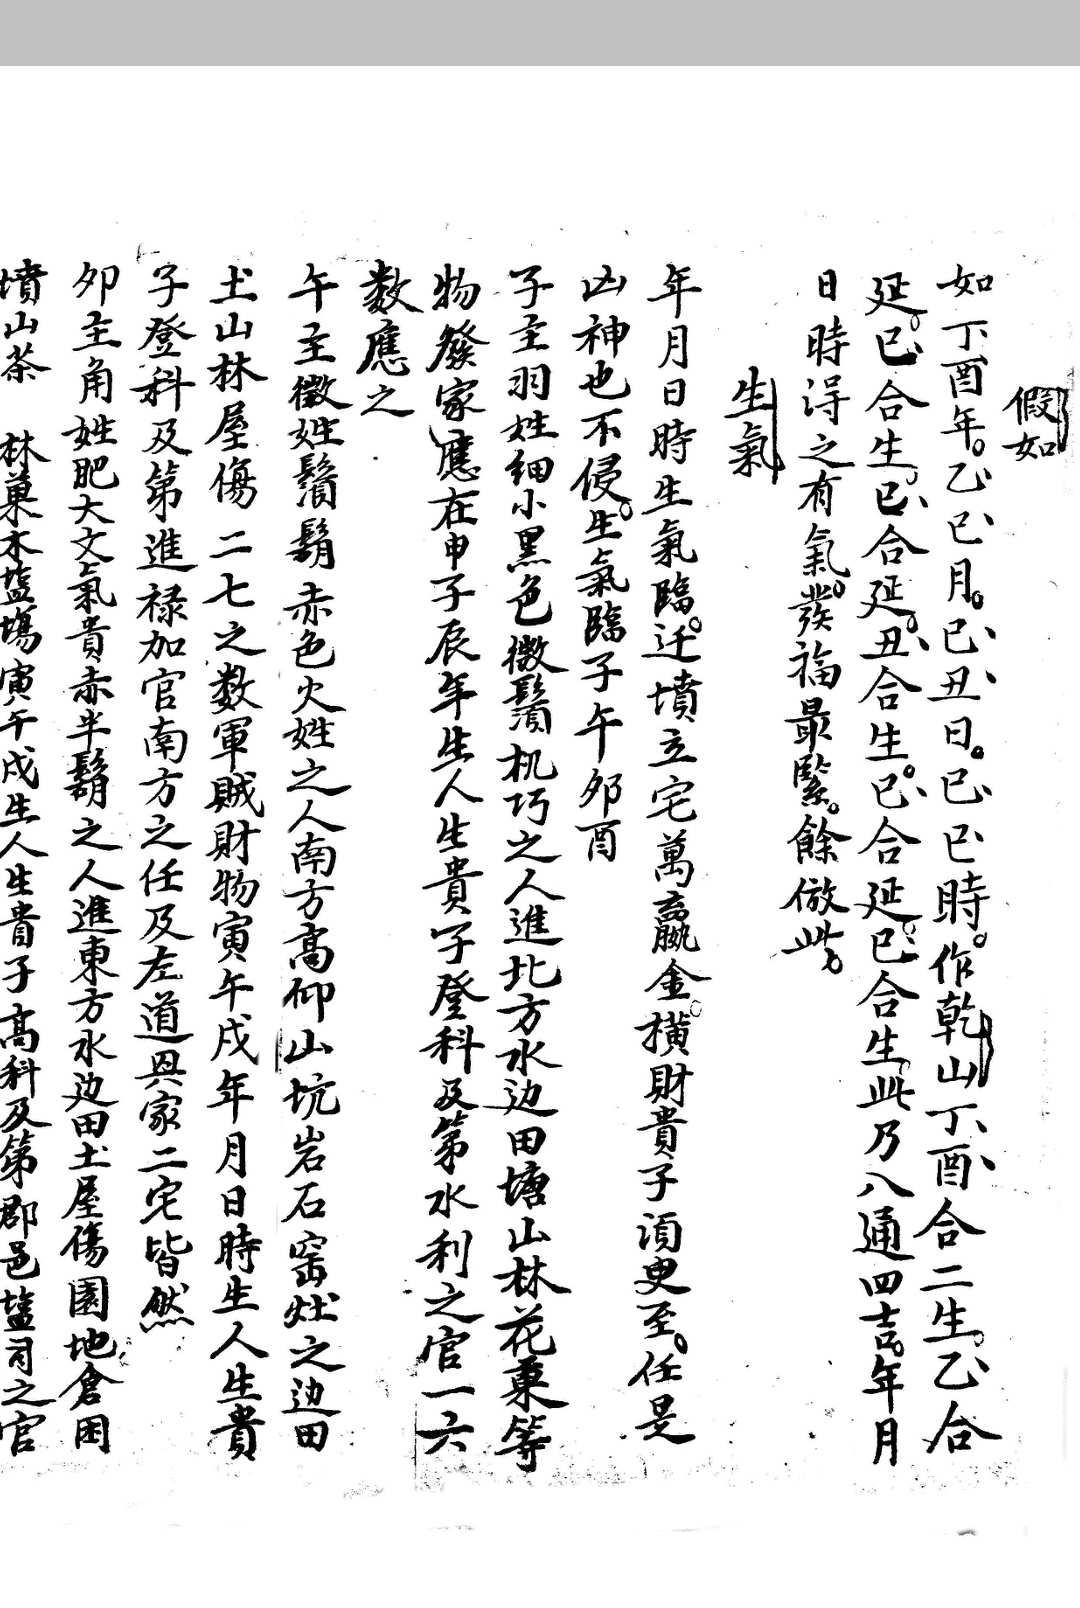 假如
如丁酉年。乙巳月。己丑日。己巳時。作乾山丁酉合二生。乙合
延。巳合生。己合延。丑合生。己合延。巳合生此乃八通四吉。年月
日時得之有氣。發福最緊。餘倣此
生氣
年月日時生氣臨。迁墳立宅萬嬴金。橫財貴子湏臾至。任是
凶神也不侵。生氣臨子午夘酉
子主羽姓細小黑色微鬚机巧之人進北方水边田塘山林花菓等
物發家應在申子辰年生人生貴子登科及第水利之官一六
数應之
午主徵姓鬚鬍赤色火姓之人南方高仰山坑岩石窑灶之边田
土山林屋傷二七之数軍賊財物寅午戍年月日時生人生貴
子登科及第進禄加官南方之任及左道與家二宅皆然
夘主角姓肥大文氣貴赤半鬍之人進東方水边田土屋傷園地倉囷
墳山茶 林菓木塩塲寅午戍生人生貴子高科及第郡邑塩司之官